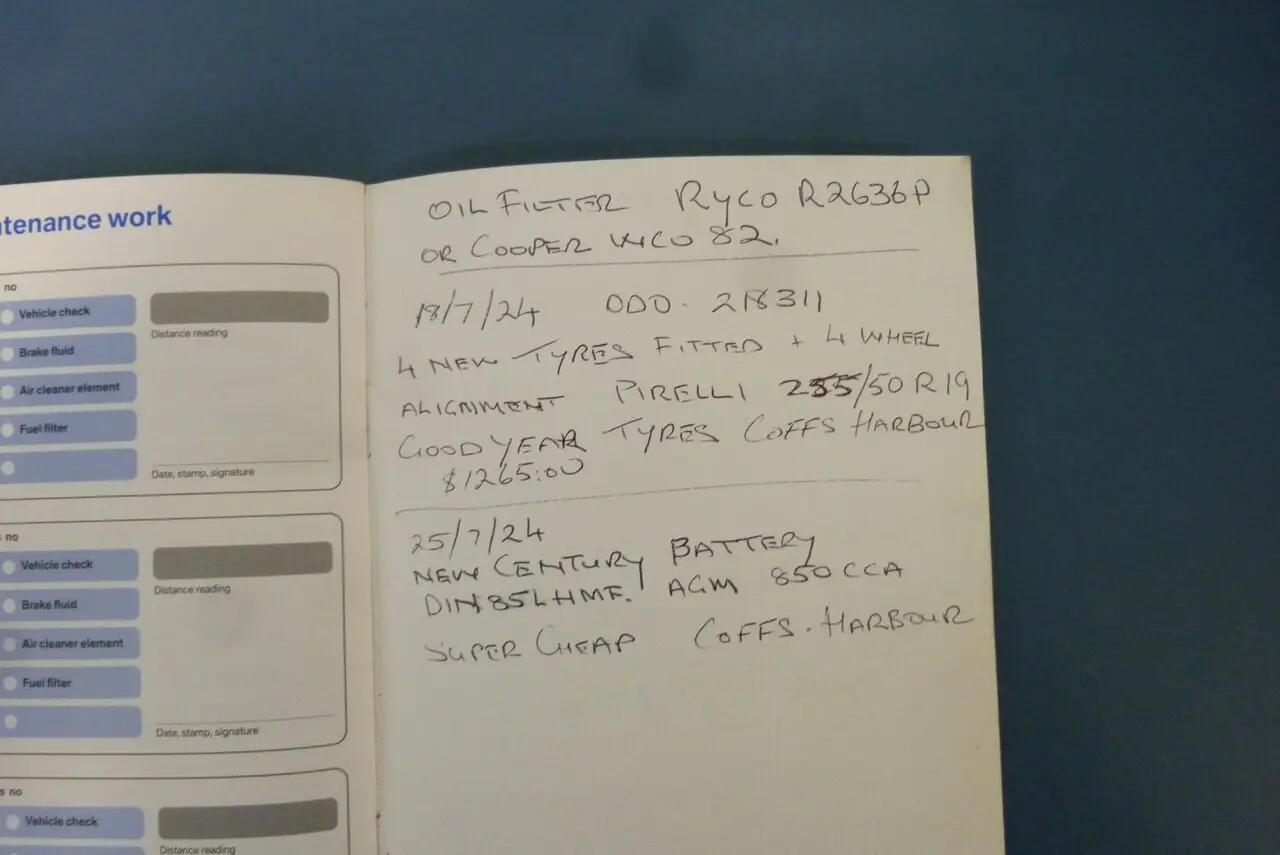 ntenance work
no
Vehicle check
Brake fluid
Air cleaner element
Fuel filter
Distance reading
Date, stamp, signature
s no
Vehicle check
Brake fluid
Air cleaner element
Fuel filter
Distance reading
Date, stamp, signature
s no
Vehicle check
Distance reading
OIL FILTER RYCO R2636P
OR COOPER WCO 82.
18/7/24 ODO. 218311
4 NEW TYRES FITTED + 4 WHEEL
ALIGNMENT PIRELLI /50 R19
GOODYEAR TYRES COFFS HARBOUR
$1265:00
25/7/24
NEW CENTURY BATTERY
DIN85LHMF. AGM 850CCA
SUPER CHEAP COFFS.HARBOUR